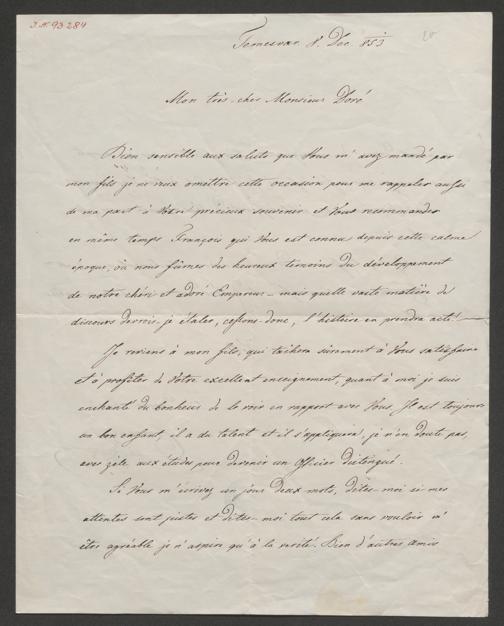 I.N. 93284
Temesvar 8. Déc. 853
Mon très-cher Monsieur Doré
Bien sensible aux saluts que Vous m'avez mandé par
mon fils je ne veux omettre cette occasion pour me rappeler aussi
de ma part à Votre précieux souvenir et Vous recommander
en même temps François qui Vous est connu depuis cette calme
époque, où nous fûmes des heureux temoins du développement
de notre chéri et adoré Empereur – mais quelle vaste matière de
discours devrois-je étaler, cessons-donc, l'histoire en prendra acte! –
Je reviens à mon fils, qui tachera sûrement à Vous satisfaire
et à profiter de Votre excellent enseignement, quant à moi je suis
enchanté du bonheur de le voir en rapport avec Vous. Il est toujours
un bon enfant, il a du talent et il s'appliquera, je n'en doute pas,
avec zèle aux études pour devenir un Officier distingué.
Si Vous m'écrivez un jour deux mots, dites-moi si mes
attentes sont justes et dites-moi tout cela sans vouloir m'
être agréable je n'aspire qu'à la verité. Bien d'autres amis